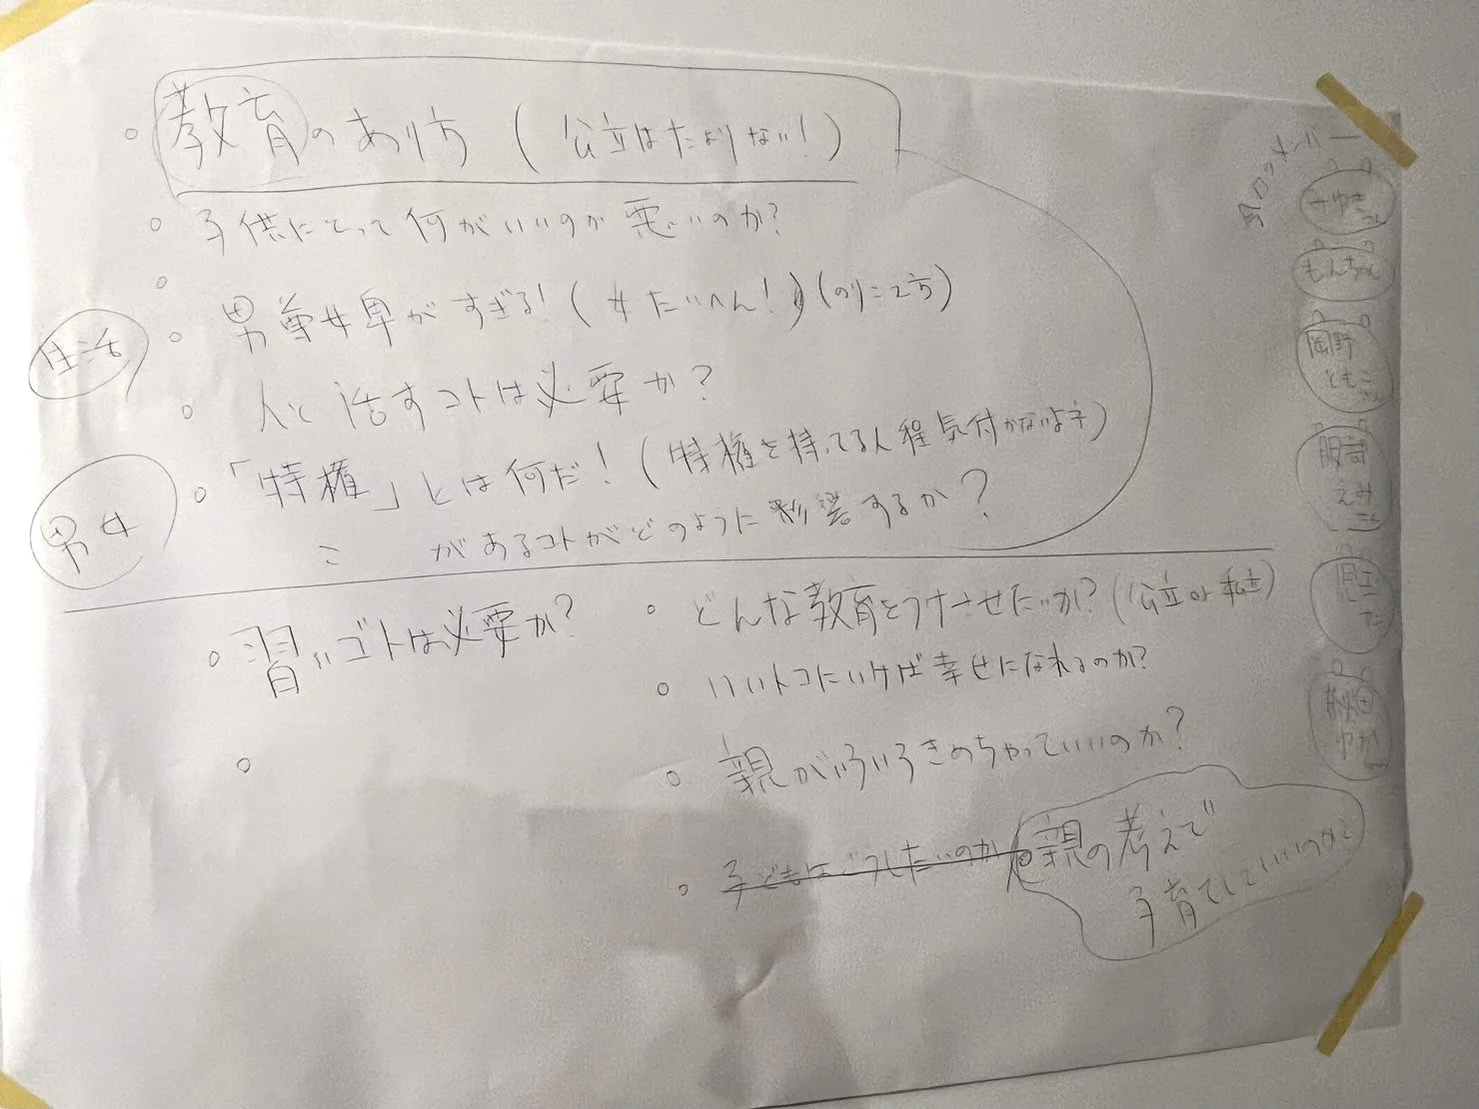 教育のあり方 (公立はたよりない!)
子供にとって何がいいのか悪いのか?
男尊女卑がすぎる! (女たいへん!)
生活
人と話すコトは必要か?
「特権」とは何だ! (特権を持ってる人程気付かない
があるコトがどのように影響するか?
男女
習いゴトは必要か?
どんな教育をうけさせたいか? (公立 or 私立)
いいトコにいけば幸せになれるのか?
親がいろいろきめちゃっていいのか?
子どもはどうしたいのか
親の考えで
子育てしていいのか?
メンバー
みゆき
もんちゃん
岡野
ともこ
服部
えみ
秋田
ゆか